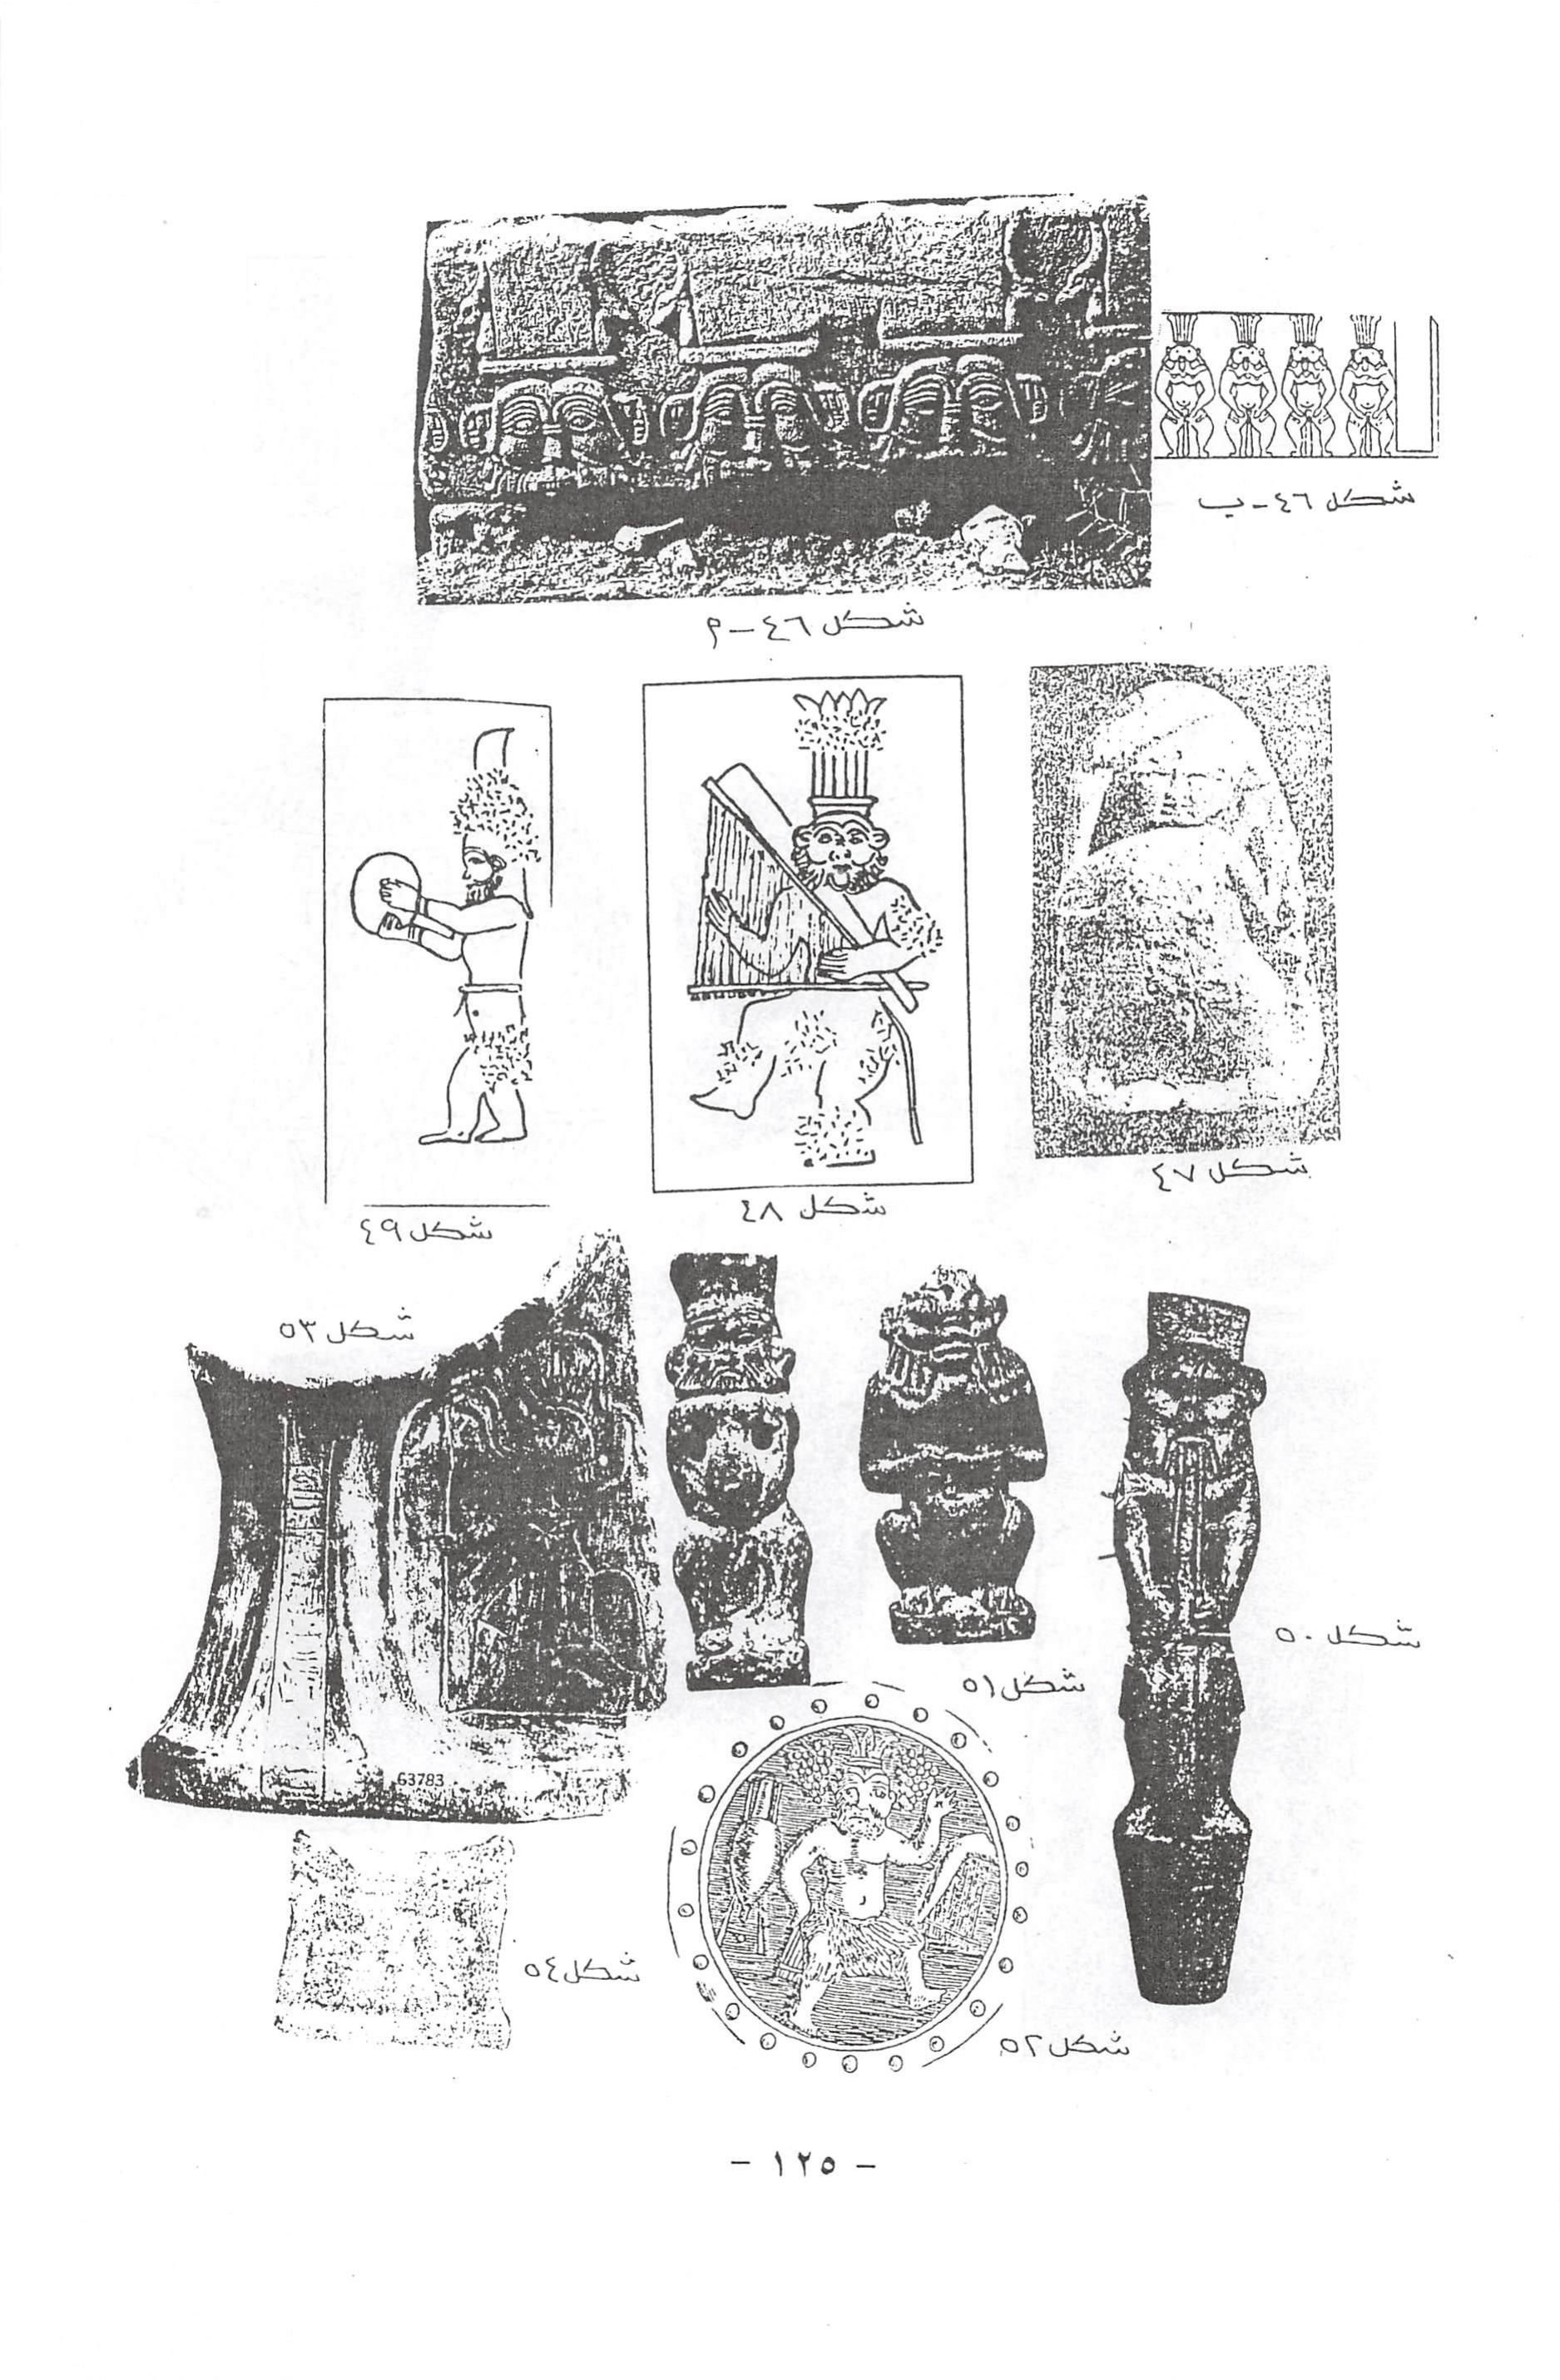 شكل ٤٦-ب
شكل ٤٦-م
شكل ٤٧
شكل ٤٨
شكل ٤٩
شكل ٥٣
شكل ٥٠
شكل ٥١
63783
شكل ٥٤
شكل ٥٢
- ١٢٥ -